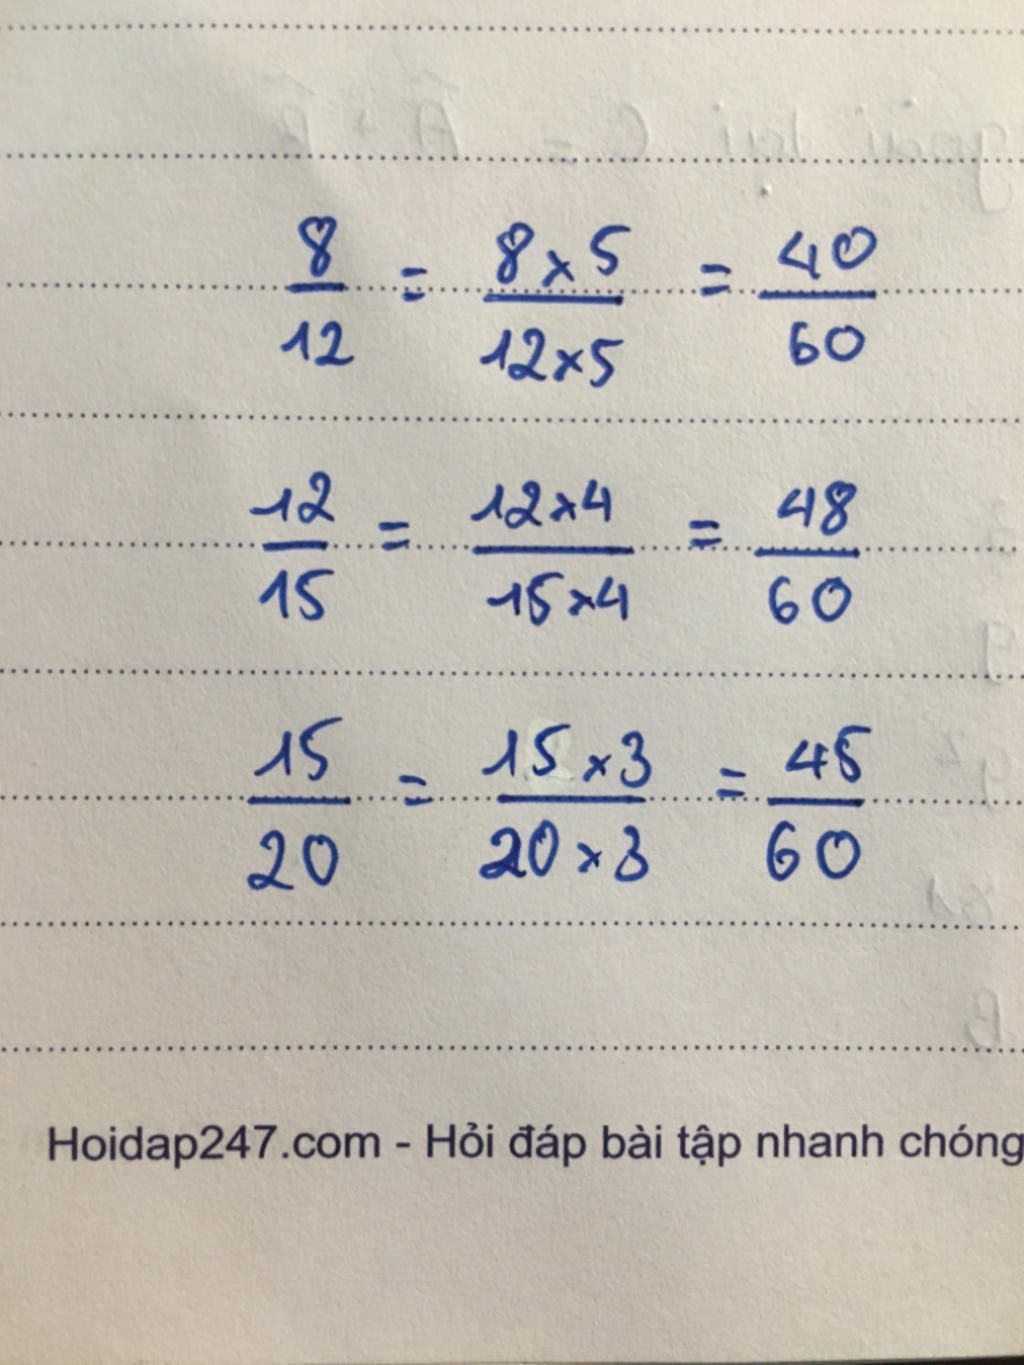 8/12 = 8×5/12×5 = 40/60
12/15 = 12×4/15×4 = 48/60
15/20 = 15×3/20×3 = 45/60
Hoidap247.com - Hỏi đáp bài tập nhanh chóng